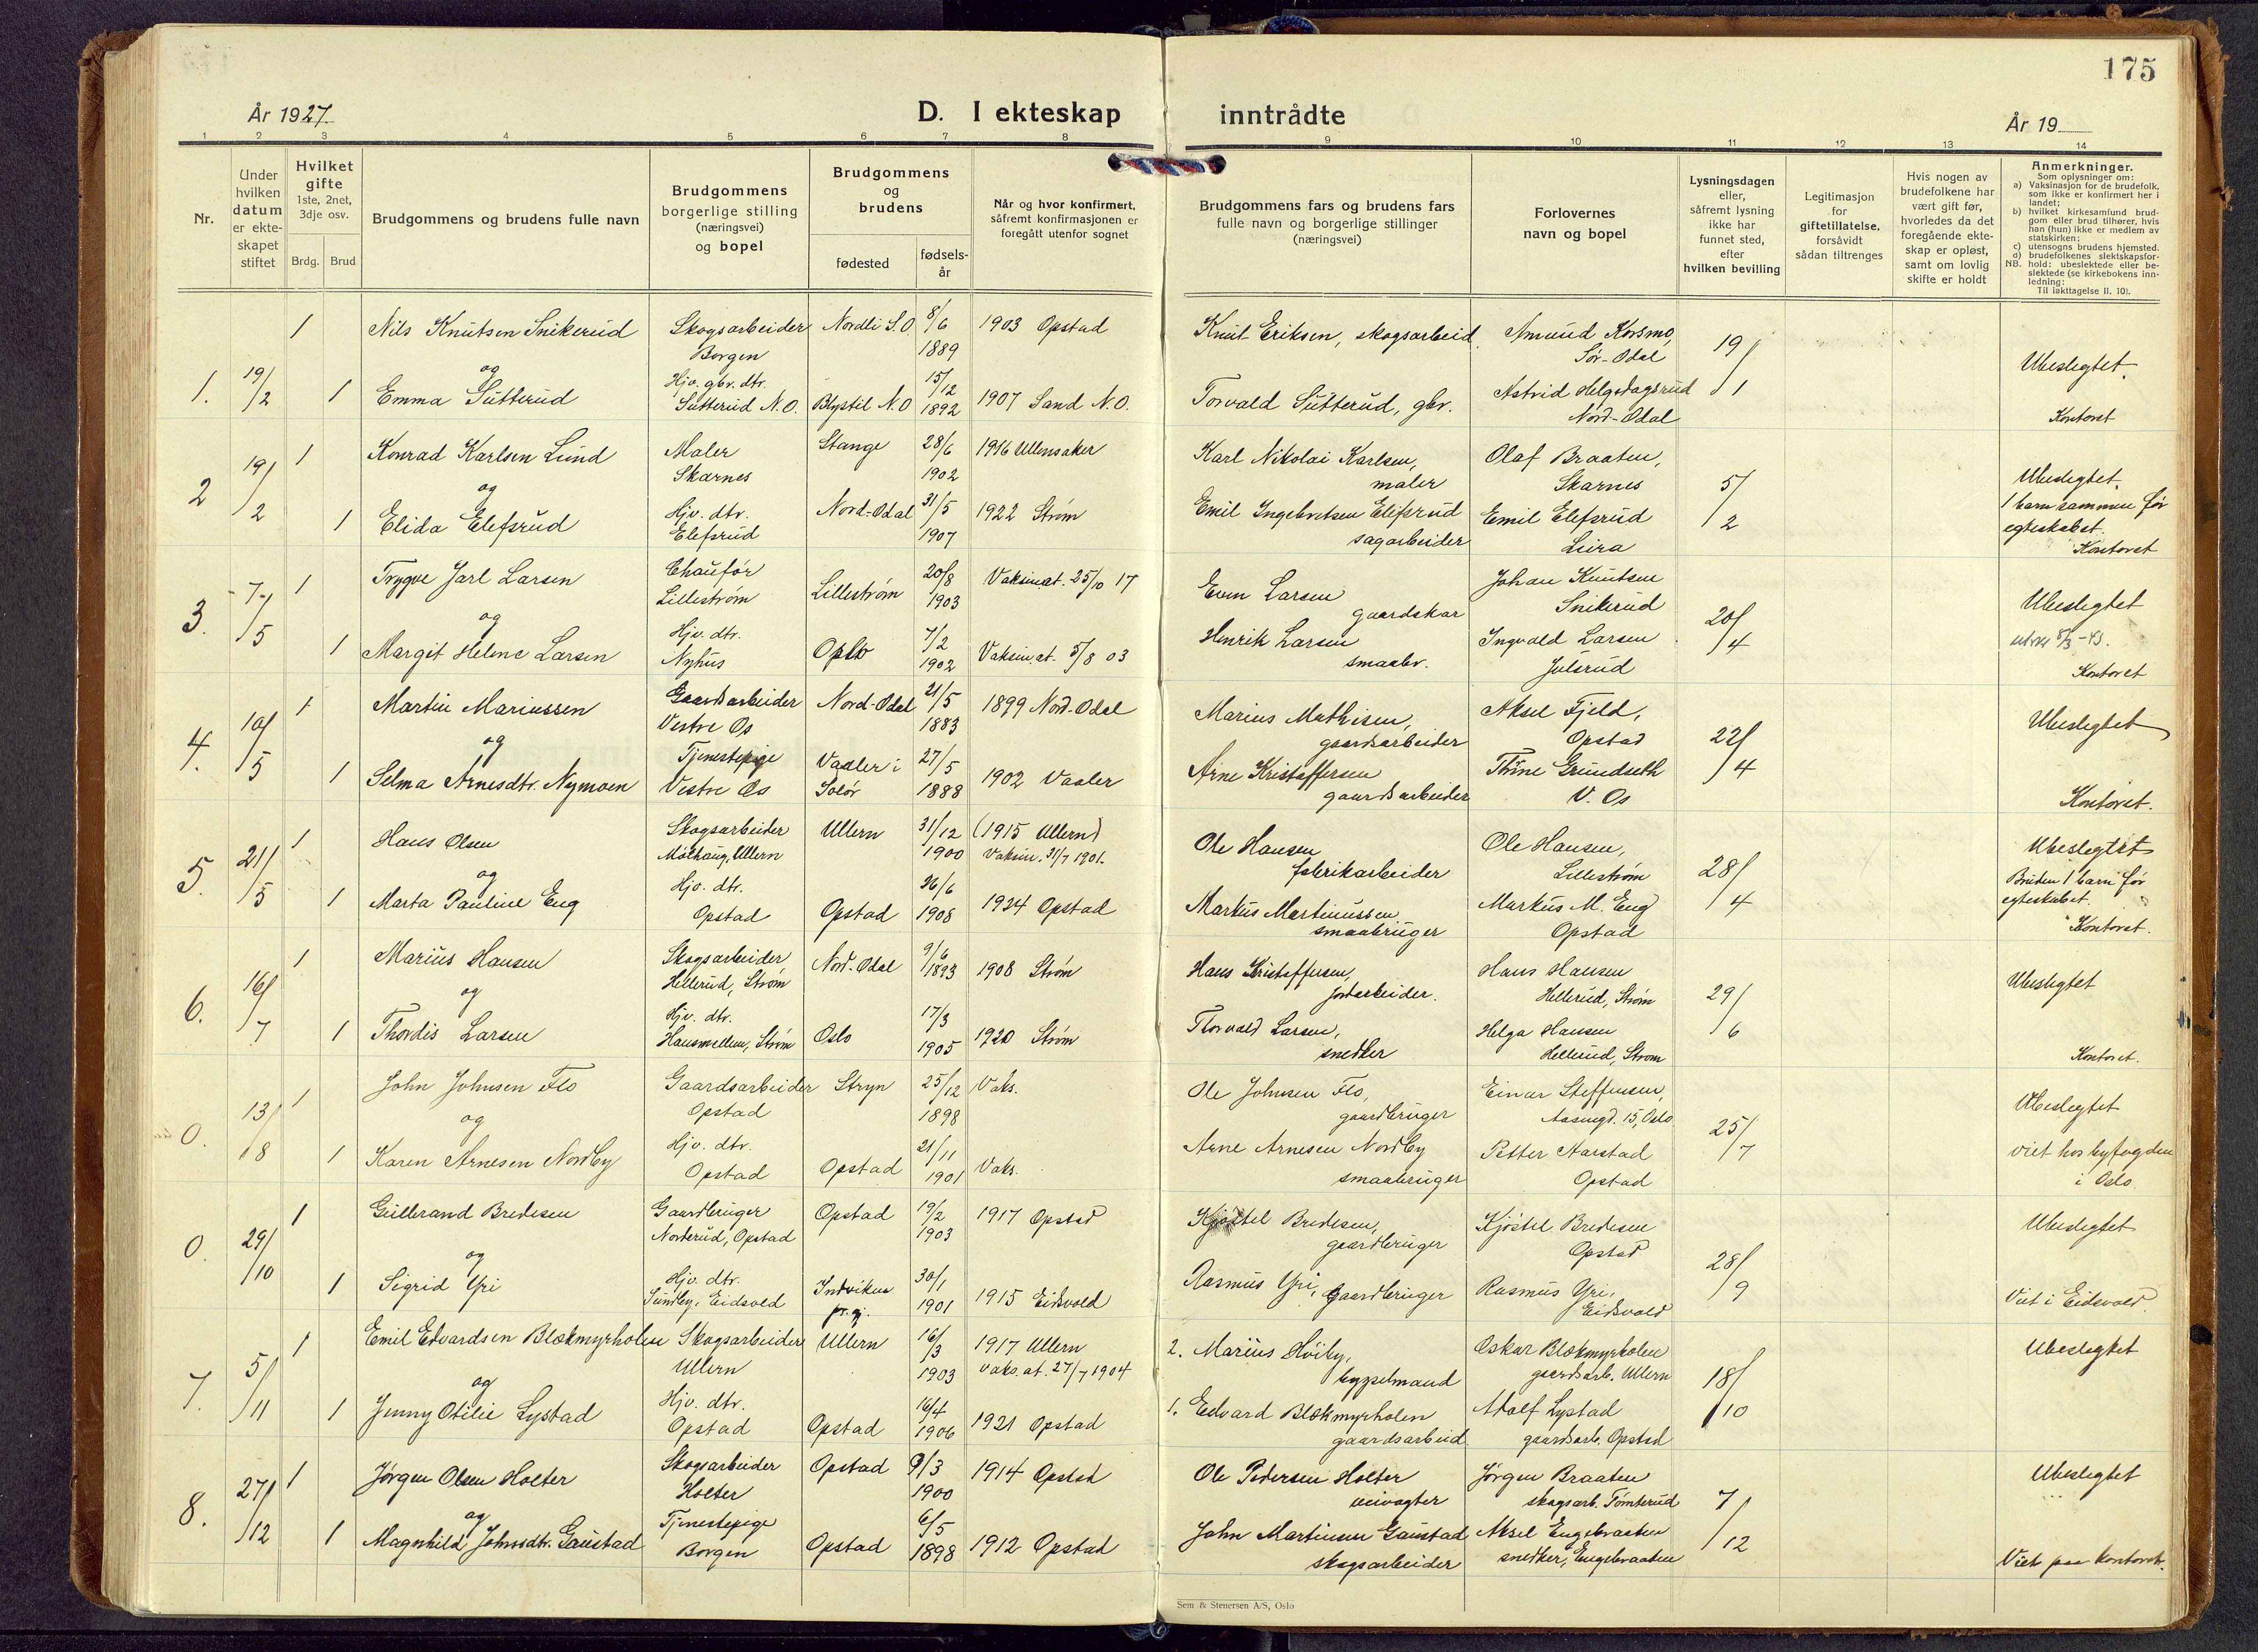 175
År 1927.
D. I ekteskap inntrådte
År 19
1 2 3 4 5 6 7 8 9 10 11 12 13 14
Nr.
Under
hvilken
datum
er ekte-
skapet
stiftet
Hvilket
gifte
1ste, 2net,
3dje osv.
Brdg. Brud
Brudgommens og brudens fulle navn
Brudgommens
borgerlige stilling
(næringsvei)
og bopel
Brudgommens
og
brudens
fødested
fødsels-
år
Når og hvor konfirmert,
såfremt konfirmasjonen er
foregått utenfor sognet
Brudgommens fars og brudens fars
fulle navn og borgerlige stillinger
(næringsvei)
Forlovernes
navn og bopel
Lysningsdagen
eller,
såfremt lysning
ikke har
funnet sted,
efter
hvilken bevilling
Legitimasjon
for
giftetillatelse,
forsåvidt
sådan tiltrenges
Hvis nogen av
brudefolkene har
vært gift før,
hvorledes da det
foregående ekte-
skap er opløst,
samt om lovlig
skifte er holdt
Anmerkninger.
Som oplysninger om:
a) Vaksinasjon for de brudefolk,
som ikke er konfirmert her i
landet;
b) hvilket kirkesamfund brud-
gom eller brud tilhører, hvis
han (hun) ikke er medlem av
statskirken;
c) utensogns brudens hjemsted.
d) brudefolkenes slektskapsfor-
hold: ubeslektede eller be-
slektede (se kirkebokens inn-
ledning:
NB.
Til iakttagelse II. 10).
1. 19/2
1 Nils Knutsen Snikerud Skogsarbeider Nordli S.O 8/6 1903 Opstad Knut Eriksen, skogsarbeid. Amund Korsmo,
Borgen 1889 Sør-Odal 19/1
og Hjv. gbr. dtr. 15/12 Ubeslegtet.
1 Emma Sutterud Sutterud N.O. Blystil N.O 1892 1907 Sand N.O. Torvald Sutterud, gbr. Astrid Helgedagsrud
Nord-Odal Kontoret
2 19/2
1 Konrad Karlsen Lund Maler Stange 28/6 1916 Ullensaker Karl Nikolai Karlsen, Olaf Braaten,
Skarnes 1902 maler Skarnes 5/2 Ubeslegtet.
og 1 barn sammen før
1 Elida Elefsrud Hjv. dtr. Nord-Odal 31/5 1922 Strøm Emil Ingebretsen Elefsrud Emil Elefsrud egteskabet.
Elefsrud 1907 sagarbeider Leira Kontoret
3. 7/5
1 Trygve Jarl Larsen Chaufør Lillestrøm 20/8 Vaksin.at. 25/10 17 Even Larsen Johan Knutsen
Lillestrøm 1903 gaardskar Snikerud 20/4 Ubeslegtet
og
1 Margit Helene Larsen Hjv. dtr. Oslo 7/2 Vaksin.at. 5/8 03 Henrik Larsen Ingvald Larsen
Nyhus 1902 smaabr. Julsrud Kontoret
4. 10/5
1 Martin Mariussen Gaardsarbeider Nord-Odal 21/5 1899 Nord-Odal Marius Mathisen, Aksel Fjeld,
Vestre Os 1883 gaardsarbeider Opstad 22/4 Ubeslegtet
og
1 Selma Arnesdtr. Nymoen Tjenestepige Vaaler i 27/5 1902 Vaaler Arne Kristoffersen Thine Grundseth
Vestre Os Solør 1888 gaardsarbeider V. Os Kontoret.
5. 21/5
1 Hans Olsen Skogsarbeider Ullern 31/12 (1915 Ullern) Ole Hansen Ole Hansen,
Molhaug, Ullern 1900 Vaksin. 31/7 1901. fabrikarbeider Lillestrøm 28/4 Ubeslegtet
og Bruden 1 barn før
1 Marta Pauline Eng Hjv. dtr. Opstad 26/6 1924 Opstad Markus Martinussen Markus M. Eng egteskabet.
Opstad 1908 smaabruger Opstad Kontoret.
6. 16/7
1 Marius Hansen Skogsarbeider Nord-Odal 9/6 1908 Strøm Hans Kristoffersen, Hans Hansen
Hellerud, Strøm 1893 jordarbeider. Hellerud, Strøm 29/6 Ubeslegtet
og
1 Thordis Larsen Hjv. dtr. Oslo 17/3 1920 Strøm Thorvald Larsen, Helga Hansen
Hansmellem, Strøm 1905 snedker Hellerud, Strøm Kontoret.
0. 13/8
1 John Johnsen Flo Gaardsarbeider Stryn 25/12 Vaks. Ole Johnsen Flo, Einar Steffensen,
Opstad 1898 gaardbruger Aasengt. 15, Oslo 25/7 Ubeslegtet
og
1 Karen Arnesen Nordby Hjv. dtr. Opstad 21/11 Vaks. Arne Arnesen Nordby Petter Aarstad viet hos byfogden
Opstad 1901 smaabruger Opstad i Oslo.
0. 29/10
1 Gulbrand Bredesen Gaardbruger Opstad 19/2 1917 Opstad Kjøstel Bredesen, Kjøstel Bredesen
Norterud, Opstad 1903 gaardbruger Opstad 28/9 Ubeslegtet
og
1 Sigrid Yri Hjv. dtr. Indviken 30/1 1915 Eidsvold Rasmus Yri, Gaardbruger Rasmus Yri,
Sundby, Eidsvold pr. gj. 1901 Eidsvold Viet i Eidsvold.
7. 5/11
1 Emil Edvardsen Blekmyrholen Skogsarbeider Ullern 16/3 1917 Ullern 2. Marius Høiby, Oskar Blekmyrholen
Ullern 1903 Vaks. at. 27/7 1904 bygselmand gaardsarb. Ullern 18/10 Ubeslegtet
og
1 Jenny Otilie Lystad Hjv. dtr. Opstad 16/4 1921 Opstad 1. Edvard Blekmyrholen Adolf Lystad
Opstad 1906 gaardsarbeid gaardsarb. Opstad
8. 27/12
1 Jørgen Olsen Holter Skogsarbeider Opstad 9/3 1914 Opstad Ole Pedersen Holter Jørgen Braaten
Holter 1900 veivogter skogsarb. Tomterud 7/12 Ubeslegtet
og
1 Magnhild Johnsdtr. Gaustad Tjenestepige Opstad 6/5 1912 Opstad John Martinsen Gaustad Aksel Engebraaten
Borgen 1898 skogsarbeider snedker, Engebraaten Viet paa kontoret.
Sem & Stenersen A/S, Oslo